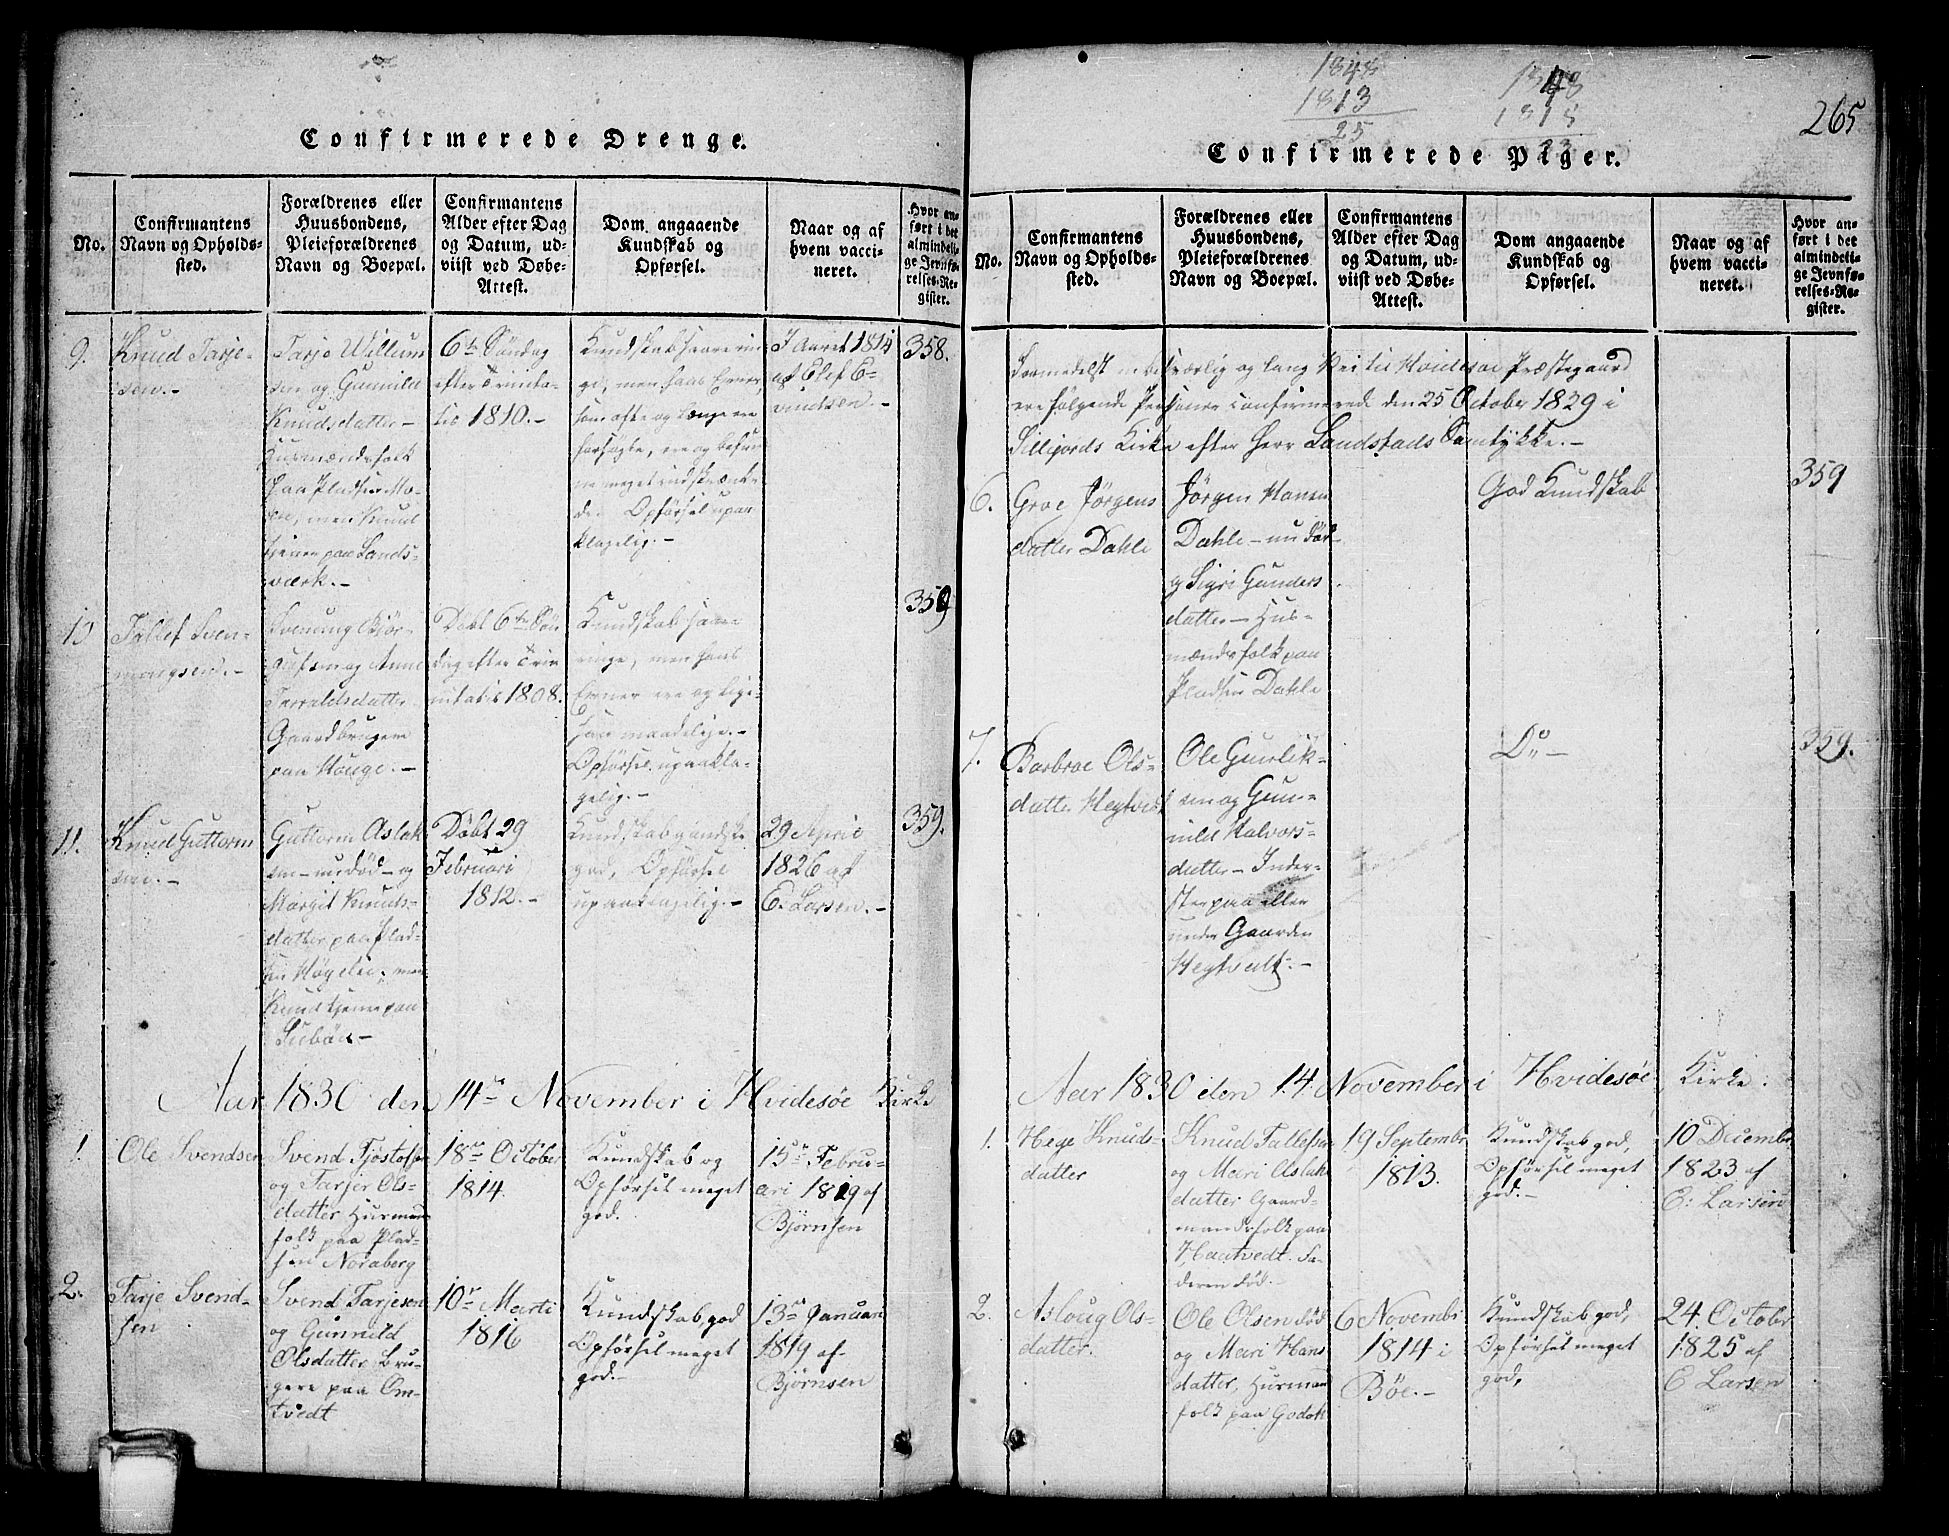 Confirmerede Drenge.
No.
Confirmantens
Navn og Opholds-
sted.
Forældrenes eller
Huusbondens,
Pleieforældrenes
Navn og Boepæl.
Confirmantens
Alder efter Dag
og Datum, ud-
viist ved Døbe-
Attest.
Dom angaaende
Kundskab og
Opførsel.
Naar og af
hvem vacci-
neret.
Hvor an-
ført i det
almindeli-
ge Jevnfø-
relses-Re-
gister.
9.
Knud Tarje-
sen.-
Tarje Willum
sen og Gunild
Knudsdatter -
Huusmændsfolk
paa Pladsen Mo-
en, men Knud
tjener paa Lands-
værk.-
6te Søndag
efter Trinita-
tis 1810.-
Kundskab saare rin
ge, men hans Evner,
som ofte og længe ere
forsøgte, ere og befun
ne meget indskrænke-
de. Opførsel upaa
klagelig.-
I Aaret 1814
af Elef E-
vindsen.-
358.
10
Tollef Sven-
ningsen.-
Svenning Bjør-
gufsen og Anne
Tarraldsdatter
Gaardbrugere
paa Houge.-
Døbt 6te Søn
dag efter Trin
nitatis 1808.
Kundskab saare
ringe, men hans
Evner ere og lige-
saa maadelige.-
Opførsel upaakla-
gelig.-
359
11.
Knud Guttorm
sen.-
Guttorm Aslak
sen - nu død - og
Margit Knuds-
datter paa Plad-
sen Høgelie, men
Knud tjener paa
Lubøn -
Døbt 29
Februari
1812.-
Kundskab ganske
god, Opførsel
upaaklagelig.-
29 April
1826 af
E: Larsen.-
359.
Aar 1830 den 14de November i Hvidesøe Kirke
1.
Ole Svendsen
Svend Tjøstofsen
og Tarjer Ols-
datter Husmands
folk paa Plad-
sen Noraberg
18de October
1814.
Kundskab og
Opførsel meget
god.
15de Febru-
ari 1819 af
Bjørnsen
2.
Tarje Svend-
sen
Svend Tarjesen
og Gunnild
Olsdatter Bru-
gere paa Om-
tvedt
10de Marti
1816
Kundskab god
Opførsel meget
god.-
13de Januari
1819 af
Bjørnsen
1848
1813
25
1848
1815
33
265
Confirmerede Piger.
No.
Confirmantens
Navn og Opholds-
sted.
Forældrenes eller
Huusbondens,
Pleieforældrenes
Navn og Boepæl.
Confirmantens
Alder efter Dag
og Datum, ud-
viist ved Døbe-
Attest.
Dom angaaende
Kundskab og
Opførsel.
Naar og af
hvem vacci-
neret.
Hvor an-
ført i det
almindeli-
ge Jevnfø-
relses-Re-
gister.
Formedelst en besværlig og lang Vei til Hvidesøe Præstegaard
ere følgende Personer confirmerede den 25 October 1829 i
Sillejords Kirke efter Herr Landstads Samtykke.-
6.
Groe Jørgens
datter Dahle
Jørgen Hansen
Dahle - nu død -
og Sigri Gunders
datter - Hus-
mændsfolk paa
Pladsen Dahle
God Kundskab
359
7.
Barbroe Ols-
datter Hegtvedt
Ole Gunlik-
sen og Gun-
nild Halvors-
datter - Inder-
ster paa eller
under Gaarden
Hegtvedt.-
Do -
359.
Aar 1830 den 14. November i Hvidesøe Kirke.
1.
Hege Knuds-
datter
Knud Tallefsen
og Mari Aslaks
datter Gaard-
mandsfolk paa
Haatvedt. Fa-
deren død.-
19 Septembr
1813.
Kundskab god,
Opførsel meget
god.-
10 Decembr
1823 af
E: Larsen
2.
Asloug Ols-
datter.
Ole Olsen død
og Mari Hans
datter, Husmands
folk paa Godok
6 Novembr
1814 i
Bøe.-
Kundskab god,
Opførsel meget
god,
24. October
1825 af
E Larsen